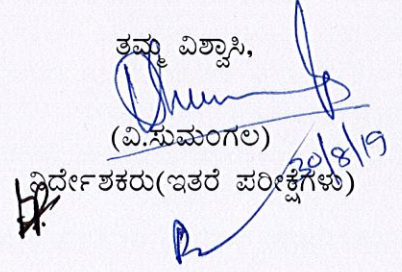 ತಮ್ಮ ವಿಶ್ವಾಸಿ,
(ವಿ.ಸುಮಂಗಲ)
30/8/19
ನಿರ್ದೇಶಕರು(ಇತರೆ ಪರೀಕ್ಷೆಗಳು)